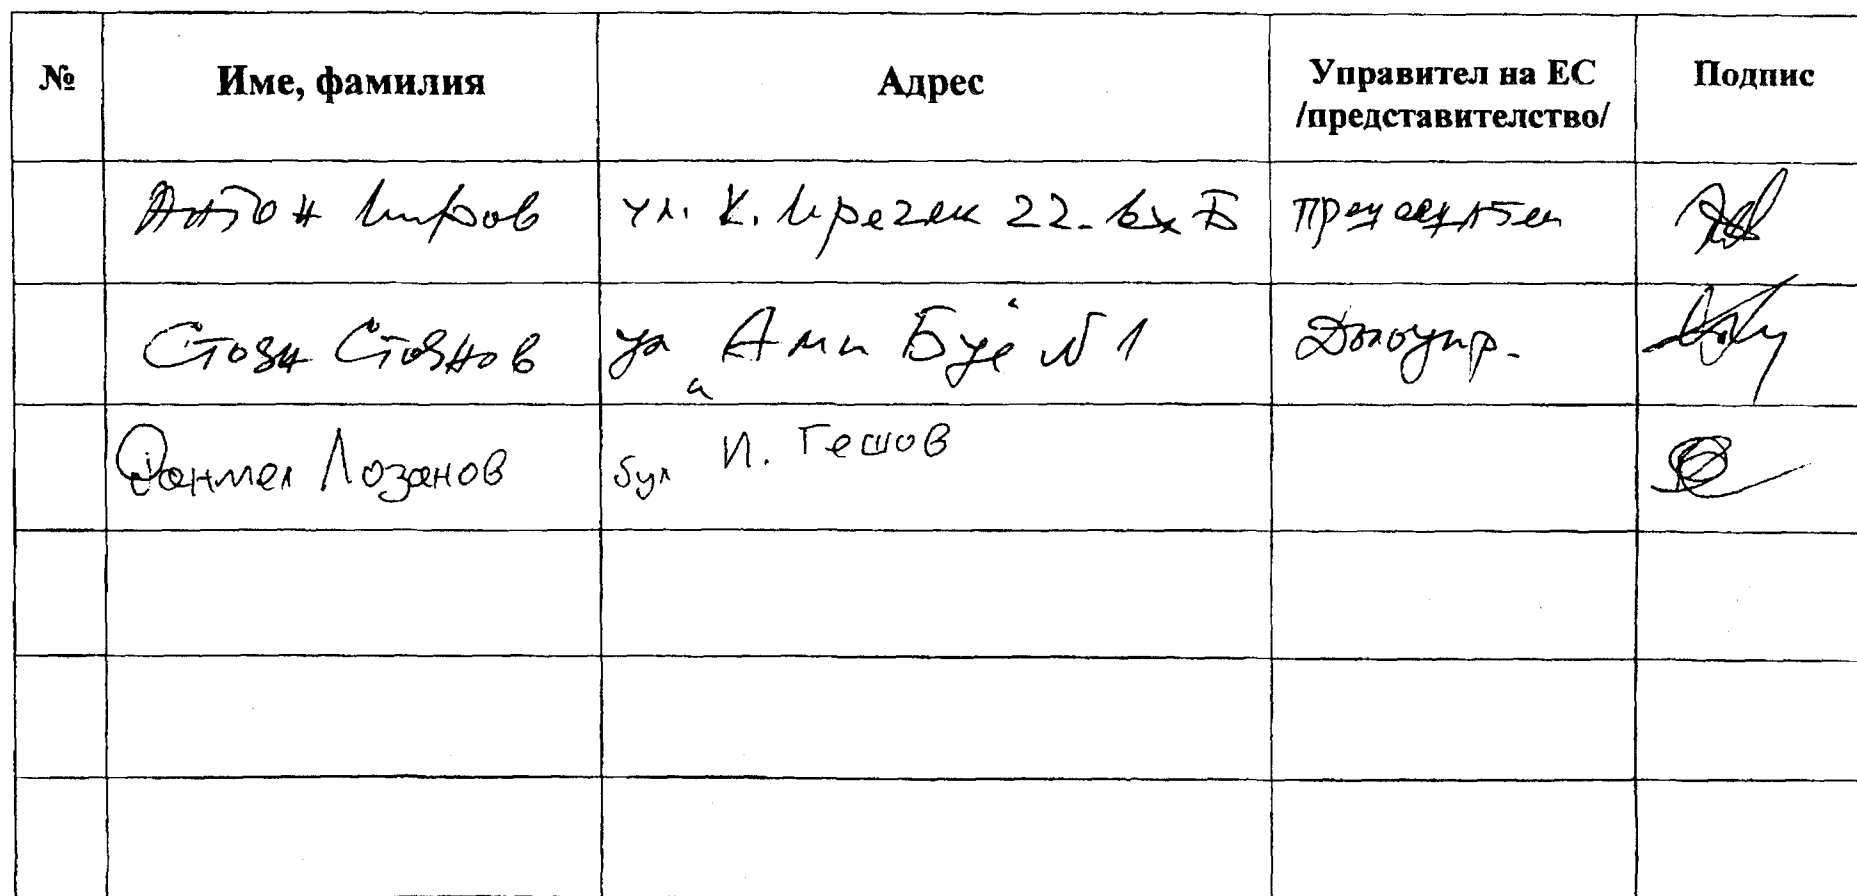 № Име, фамилия Адрес Управител на ЕС /представителство/ Подпис
Антон ул. К. Иречек 22. вх Б
Стоян Стоянов ул Ами Буе № 1 Домоупр.
Даниел Лозанов бул И. Гешов